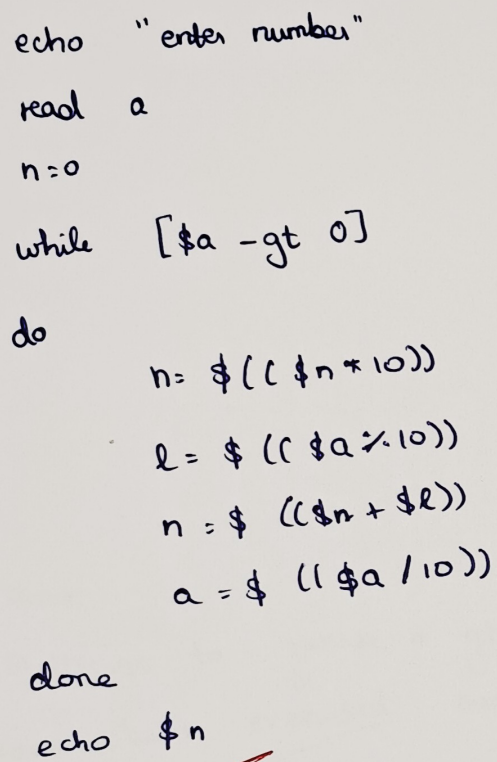 echo "enter number"
read a
n=0
while [$a -gt 0]
do
n= $(( $n * 10))
l= $ (( $a % 10))
n = $ (($n + $l))
a = $ (( $a / 10))
done
echo $n